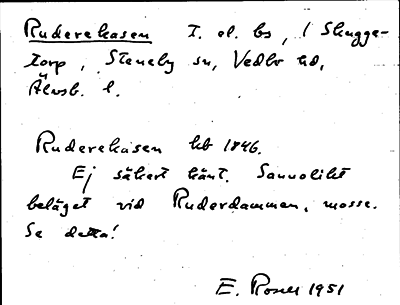 Ruderekasen T. el. bs, i Skugge-
torp, Steneby sn, Vedbo hd,
Älvsb. l.
Ruderekåsen hb 1846.
Ej säkert känt. Sannolikt
beläget vid Ruderdammen, mosse.
Se detta!
E. Rosell 1951